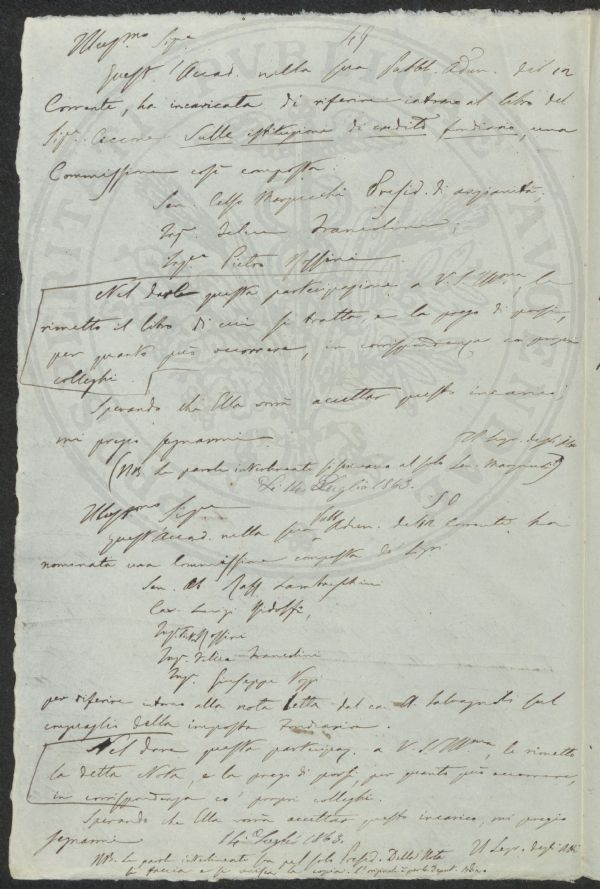 Illus.mo Sig.re 49
Quest'Accad. nella sua Pubbl. Adun. del 12
Corrente, ha incaricata di riferire intorno al libro del
Sig. sulle istituzione di credito fondiario, una
Commissione così composta.
Sen. Celso Marzucchi Presid. di anzianità,
Ing. Felice Francolini,
Ing.re Pietro Rossini
Nel darle questa partecipazione a V. S. Ill.ma, le
rimetto il libro di cui si tratta, e la prego di porsi,
per quanto può occorrere, in corrispondenza coi propri
colleghi.
Sperando che Ella vorrà accettar questo incarico,
mi pregio segnarmi
Il Segr. degli Atti
(NB. Le parole interlineate si scrivano al solo Sen. Marzucchi)
Li 14 Luglio 1863.
Illus.mo Sig.re 50
Quest'Accad. nella sua Pubb. Adun. del 12 Corrente, ha
nominata una Commissione composta de' Sigri
Sen. Ab. Raff. Lambruschini
Cav. Luigi Ridolfi,
Ing. Rossini
Ing. Felice Francolini
Ing. Giuseppe
per riferire intorno alla nota letta dal cav. A. Salvagnoli sul
conguaglio della imposta Fondiaria.
Nel dare questa partecipaz. a V. S. Ill.ma, le rimetto
la detta Nota, e la prego di porsi, per quanto può occorrere,
in corrispondenza co' propri colleghi.
Sperando che Ella vorrà accettare questo incarico, mi pregio
segnarmi 14 Luglio 1863.
Il Segr. degli Atti
NB. Le parole interlineate pel solo Presid. Della Nota
si faccia e si unisca la copia. L'originale